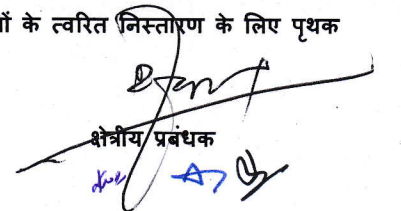 ों के त्वरित निस्तारण के लिए पृथक
क्षेत्रीय प्रबंधक